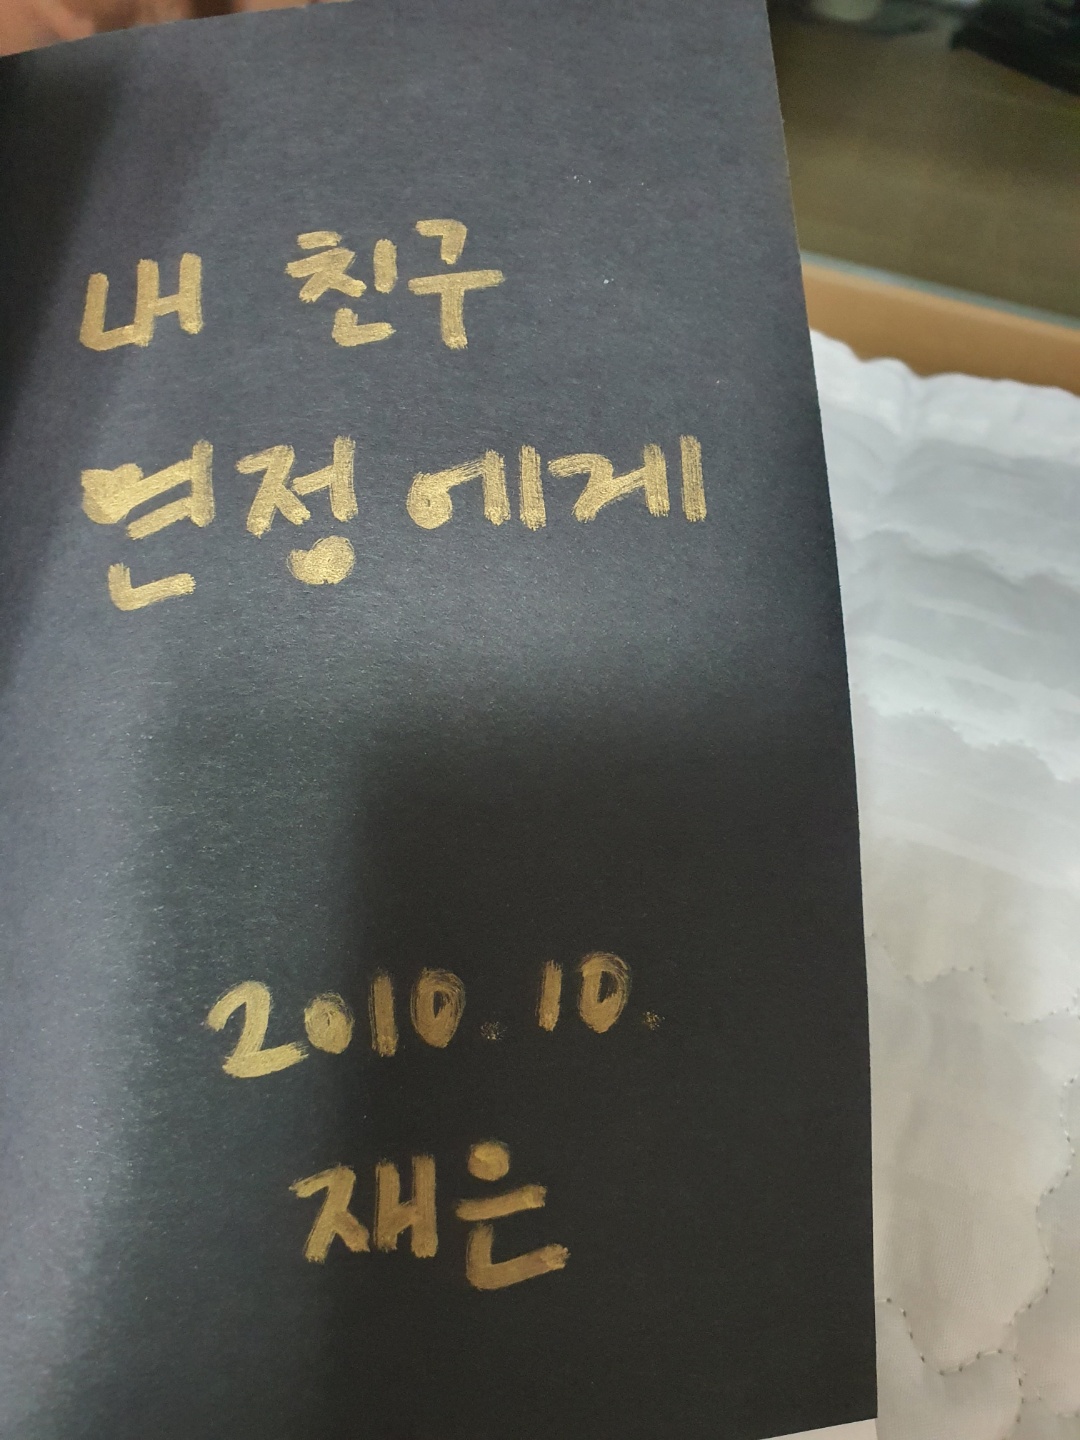 내 친구
연정에게
2010. 10.
재은